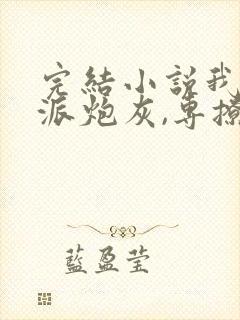 完結小説我
派炮灰,專撩
藍盈瑩